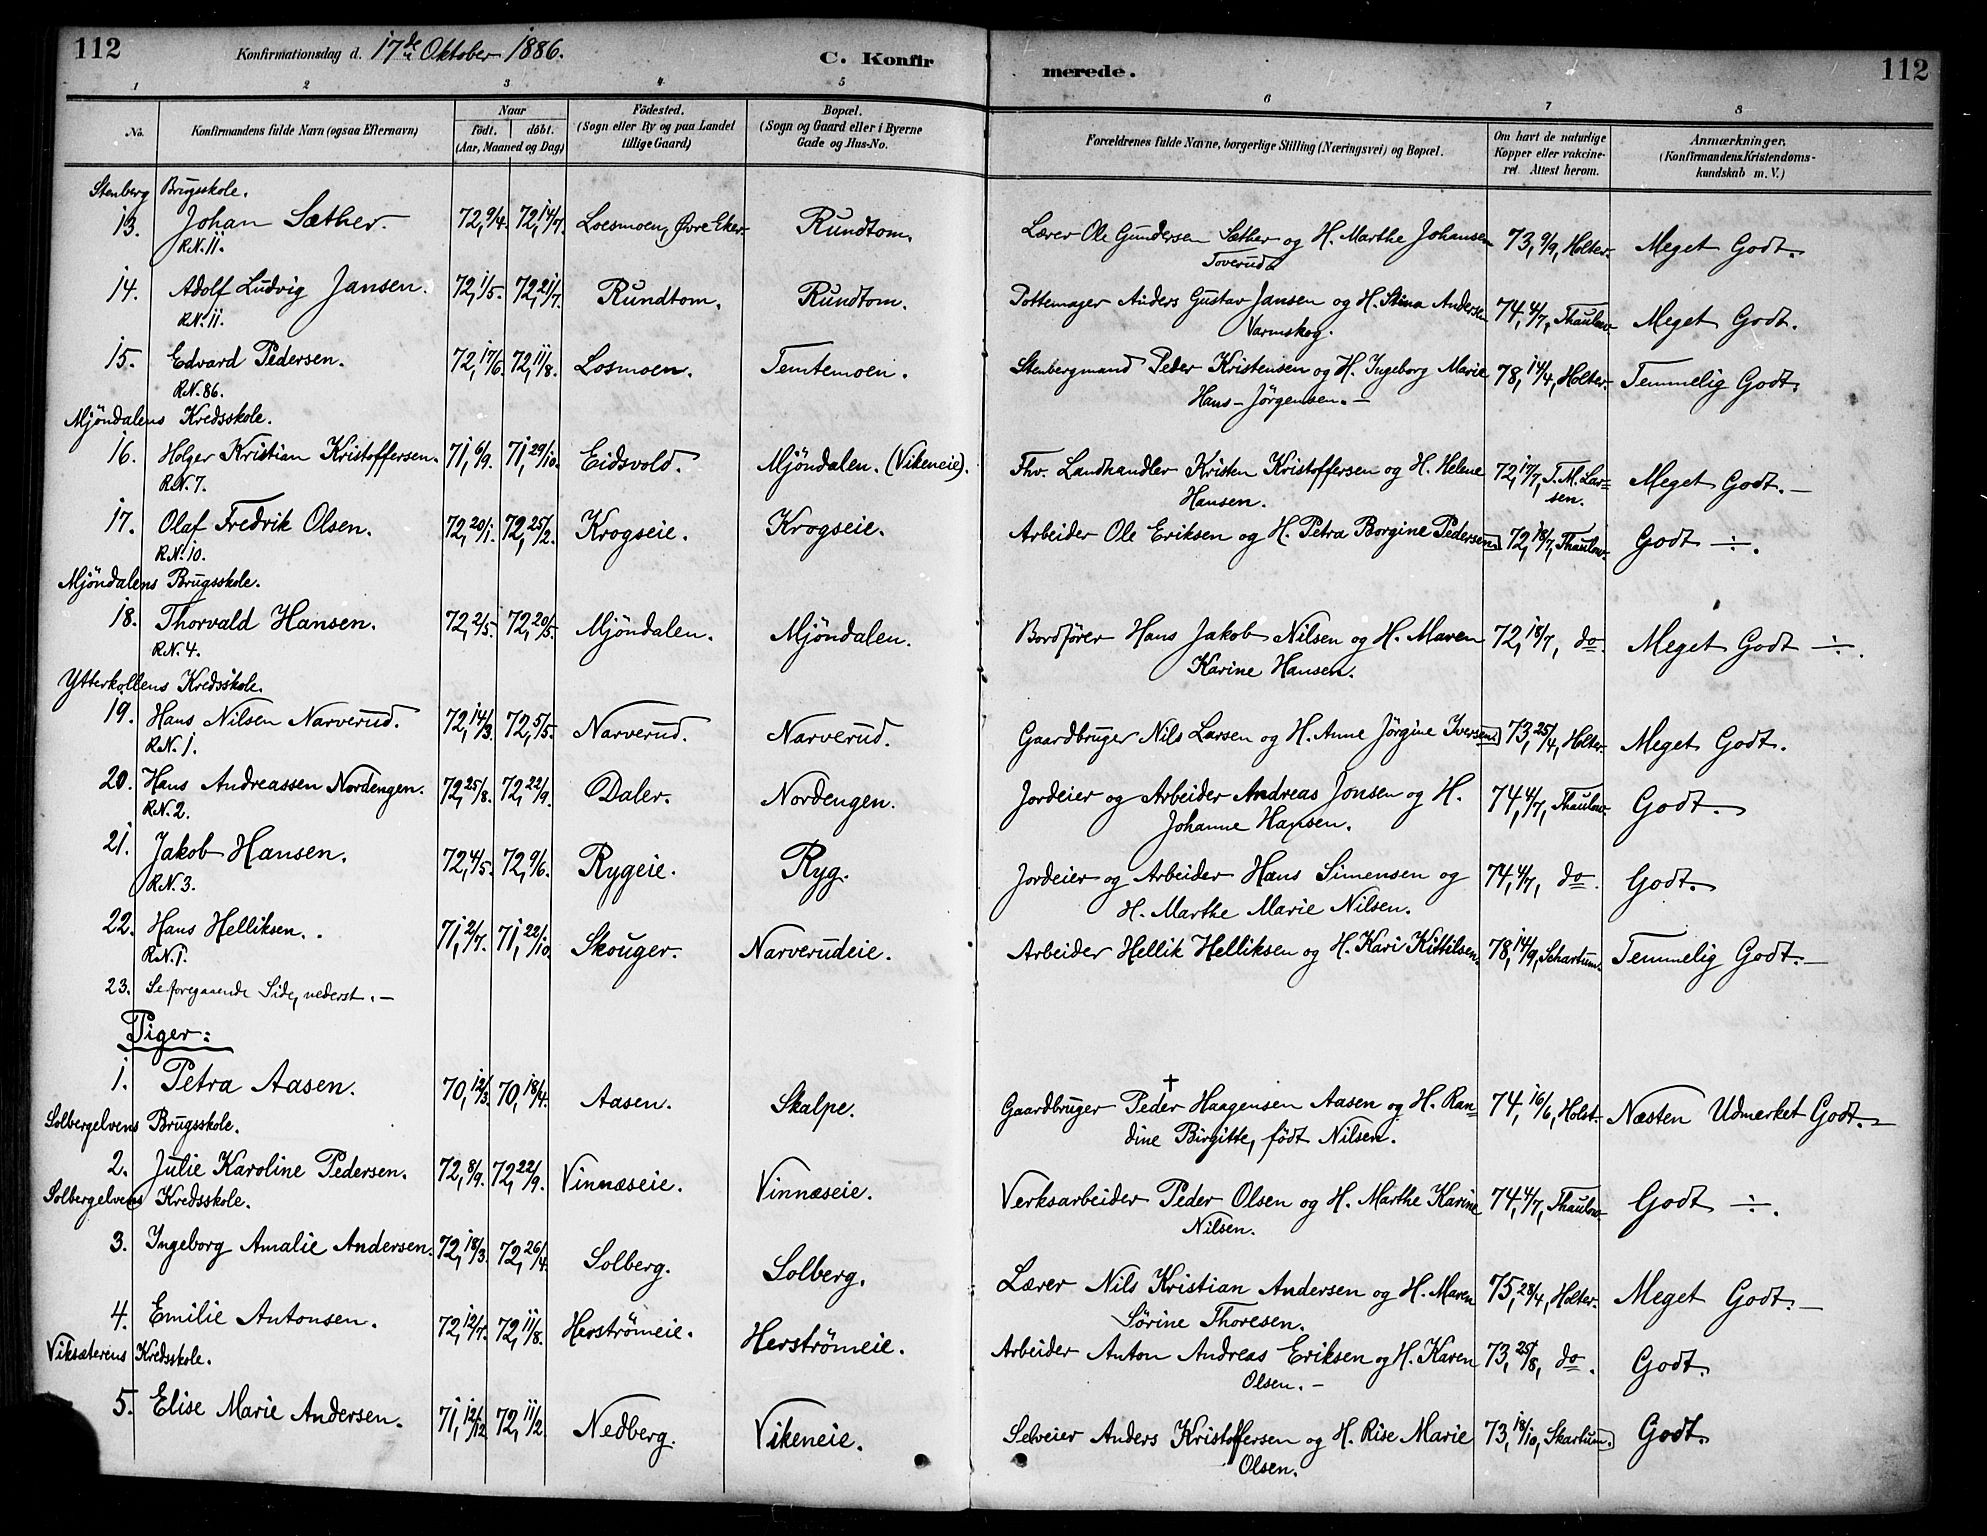 112 Konfirmationsdag d. 17de Oktober 1886. C. Konfir merede. 112
1 2 3 4 5 6 7 8
No. Konfirmandens fulde Navn (ogsaa Efternavn) Naar født. døbt. (Aar, Maaned og Dag) Fødested. (Sogn eller By og paa Landet tillige Gaard) Bopæl. (Sogn og Gaard eller i Byerne Gade og Hus-No. Forældrenes fulde Navne, borgerlige Stilling (Næringsvei) og Bopæl. Om havt de naturlige Kopper eller vakcineret. Attest herom. Anmærkninger. (Konfirmandens Kristendomskundskab m. V.)
Stenberg Brugsskole.
13. Johan Sæther. 72, 9/4. 72, 14/7. Loesmoen, Øvre Eker. Rundtom. Lærer Ole Gundersen Sæther og H. Marthe Johansen 73, 9/9, Holter. Meget Godt.
R.N. 11. Toverud.
14. Adolf Ludvig Jansen. 72, 1/5. 72, 21/7. Rundtom. Rundtom. Pottemager Anders Gustav Jansen og H. Stina Andersen 74, 4/7, Thaulow Meget Godt.
R.N. 11. Varmskog.
15. Edvard Pedersen. 72, 17/6. 72, 11/8. Losmoen. Temtemoen. Stenbergmand Peder Kristensen og H. Ingeborg Marie 78, 14/4, Holter. Temmelig Godt.
R.N. 86. Hans-Jørgensen. –
Mjöndalens Kredsskole.
16. Holger Kristian Kristoffersen. 71, 6/9. 71, 29/10. Eidsvold. Mjöndalen. (Vikeneie). Fhv. Landhandler Kristen Kristoffersen og H. Helene 72, 17/7, T. M. Lar=
R.N. 7. Hansen. sen. Meget Godt. –
17. Olaf Fredrik Olsen. 72, 20/1. 72, 25/2. Krogseie. Krogseie. Arbeider Ole Eriksen og H. Petra Borgine Pedersen. 72, 18/7, Thaulow Godt ÷.
R.N. 10.
Mjöndalens Brugsskole.
18. Thorvald Hansen. 72, 2/5. 72, 20/5. Mjöndalen. Mjöndalen. Bordfører Hans Jakob Nilsen og H. Maren 72, 18/7, do. Meget Godt ÷.
R.N. 4. Karine Hansen.
Ytterkollens Kredsskole.
19. Hans Nilsen Narverud. 72, 14/3. 72, 5/5. Narverud. Narverud. Gaardbruger Nils Larsen og H. Anne Jörgine Iversen. 73, 25/4, Holter. Meget Godt.
R.N. 1.
20. Hans Andreassen Nordengen. 72, 25/8. 72, 22/9. Daler. Nordengen. Jordeier og Arbeider Andreas Jonsen og H. 74, 4/7, Thaulow. Godt.
R.N. 2. Johanne Hansen.
21. Jakob Hansen. 72, 4/5. 72, 9/6. Rygeie. Ryg. Jordeier og Arbeider Hans Simensen og 74, 4/7, do. Godt.
R.N. 3. H. Marthe Marie Nilsen.
22. Hans Helliksen. 71, 2/7. 71, 22/10. Skouger. Narverudeie. Arbeider Hellik Helliksen og H. Kari Kittilsen. 78, 14/9, Schartum. Temmelig Godt. –
R.N. 1.
23. Se foregaaende Side, nederst. –
Piger:
1. Petra Aasen. 70, 12/3. 70, 18/4. Aasen. Skalpe. Gaardbruger † Peder Haagensen Aasen og H. Ran= 74, 16/6, Holst. Næsten Udmærket Godt. –
Solbergelvens Brugsskole. dine Birgitte, født Nilsen.
2. Julie Karoline Pedersen. 72, 8/9. 72, 22/9. Vinnæseie. Vinnæseie. Verksarbeider Peder Olsen og H. Marthe Karine 74, 4/7, Thaulow Godt ÷.
Solbergelvens Kredsskole. Nilsen.
3. Ingeborg Amalie Andersen. 72, 18/3. 72, 26/4. Solberg. Solberg. Lærer Nils Kristian Andersen og H. Maren 75, 28/4, Holter. Meget Godt. –
Sörine Thoresen.
4. Emilie Antonsen. 72, 12/7. 72, 11/8. Herströmeie. Herströmeie. Arbeider Anton Andreas Eriksen og H. Karen 73, 25/8, do. Godt.
Viksæterens Kredsskole. Olsen. –
5. Elise Marie Andersen. 71, 12/12 72, 11/2 Nedberg. Vikeneie. Selveier Anders Kristoffersen og H. Rise Marie 73, 18/10, Skartum. Godt.
Olsen.